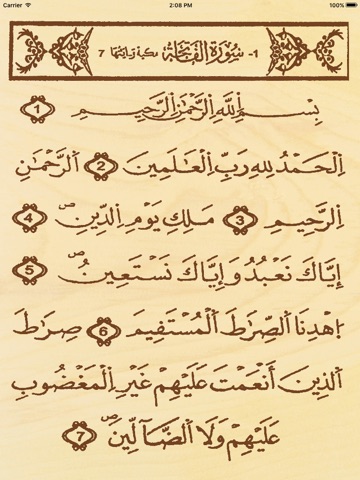 Carrier 2:08 PM 100%
1- سُورَةُ الْفَاتِحَةِ مكية وآياتها 7
بِسْمِ اِللَّهِ اِلرَّحْمَٰنِ اِلرَّحِيمِ 1
اِلْحَمْدُ لِلهِ رَبِّ اِلْعَٰلَمِينَ 2 اَلرَّحْمَٰنِ
اِلرَّحِيمِ 3 مَلِكِ يَوْمِ اِلدِّينِ 4
إِيَّاكَ نَعْبُدُ وَإِيَّاكَ نَسْتَعِينُ 5
اِهْدِنَا اَلصِّرَٰطَ اَلْمُسْتَقِيمَ 6 صِرَٰطَ
اَلذِينَ أَنْعَمْتَ عَلَيْهِمْ غَيْرِ اِلْمَغْضُوبِ
عَلَيْهِمْ وَلَا اَلضَّآلِّينَ 7